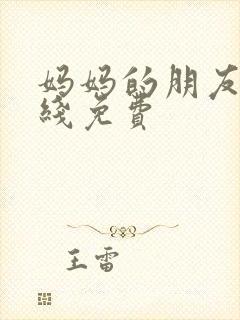 妈妈的朋友
线免费
王雷